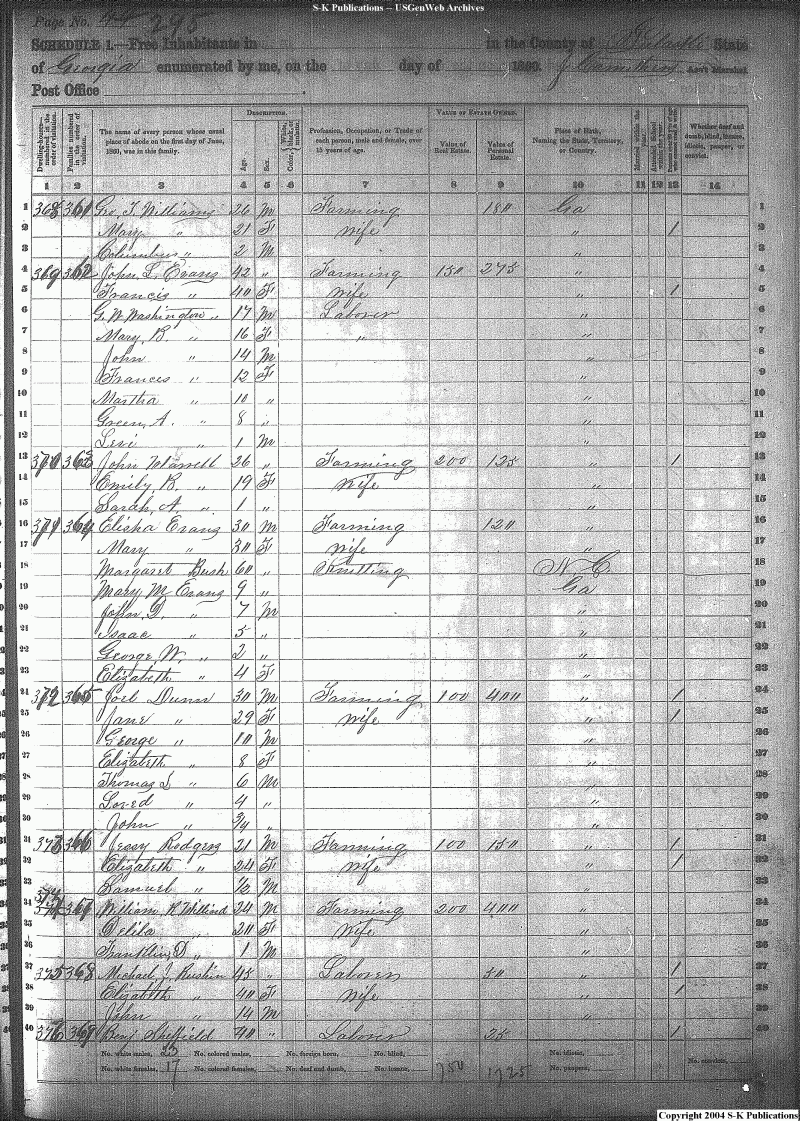 S-K Publications – USGenWeb Archives
Page No. 295
SCHEDULE 1.—Free Inhabitants in in the County of State
of Georgia enumerated by me, on the day of 1860. Ass't Marshal.
Post Office
Dwelling-houses—numbered in the order of visitation.
Families numbered in the order of visitation.
The name of every person whose usual place of abode on the first day of June, 1860, was in this family.
DESCRIPTION.
Age.
Sex.
Color, White, black, or mulatto.
Profession, Occupation, or Trade of each person, male and female, over 15 years of age.
VALUE OF ESTATE OWNED.
Value of Real Estate.
Value of Personal Estate.
Place of Birth, Naming the State, Territory, or Country.
Married within the year.
Attended School within the year.
Persons over 20 y'rs of age who cannot read & write.
Whether deaf and dumb, blind, insane, idiotic, pauper, or convict.
1 2 3 4 5 6 7 8 9 10 11 12 13 14
1 368 361 Geo. T. Williams 26 M Farming 180 Ga 1
2 Mary " 21 F Wife " 1 2
3 Columbus " 2 M " 3
4 369 362 John L Evans 42 " Farming 150 275 " 4
5 Francis " 40 F Wife " 1 5
6 G. W. Washington " 17 M Laborer " 6
7 Mary B " 16 F " " 7
8 John " 14 M " 8
9 Frances " 12 F " 9
10 Martha " 10 " " 10
11 Green A. " 8 " " 11
12 Levi " 1 M " 12
13 370 363 John 26 " Farming 200 125 " 1 13
14 Emily B " 19 F Wife " 14
15 Sarah A " 1 " " 15
16 371 364 Elisha Evans 30 M Farming 120 " 16
17 Mary " 30 F Wife " 17
18 Margaret Rush 60 " Knitting N C 18
19 Mary M Evans 9 " Ga 19
20 John D. " 7 M " 20
21 Isaac " 5 " " 21
22 George W. " 2 " " 22
23 Elizabeth " 4 F " 23
24 372 365 Joel Dunn 30 M Farming 100 400 " 1 24
25 Jane " 29 F Wife " 1 25
26 George " 10 M " 26
27 Elizabeth " 8 F " 27
28 Thomas L " 6 M " 28
29 Loved " 4 " " 29
30 John " 3/4 " " 30
31 373 366 Jessy Rodgers 21 M Farming 100 150 " 1 31
32 Elizabeth " 24 F Wife " 1 32
33 Samuel " 1/2 M " 33
34 374 367 William R 24 M Farming 200 400 " 34
35 Delila " 20 F Wife " 35
36 Franklin D " 1 M " 36
37 375 368 Michael J Ruskin 45 " Laborer 50 " 1 37
38 Elizabeth " 40 F Wife " 1 38
39 John " 14 M " 39
40 376 369 Benj Sheffield 40 " Laborer 25 1 40
No. white males, 23 No. colored males, No. foreign born, No. blind, No. idiotic, No. convicts,
No. white females, 17 No. colored females, No. deaf and dumb, No. insane, 750 1725 No. paupers,
Copyright 2004 S-K Publications